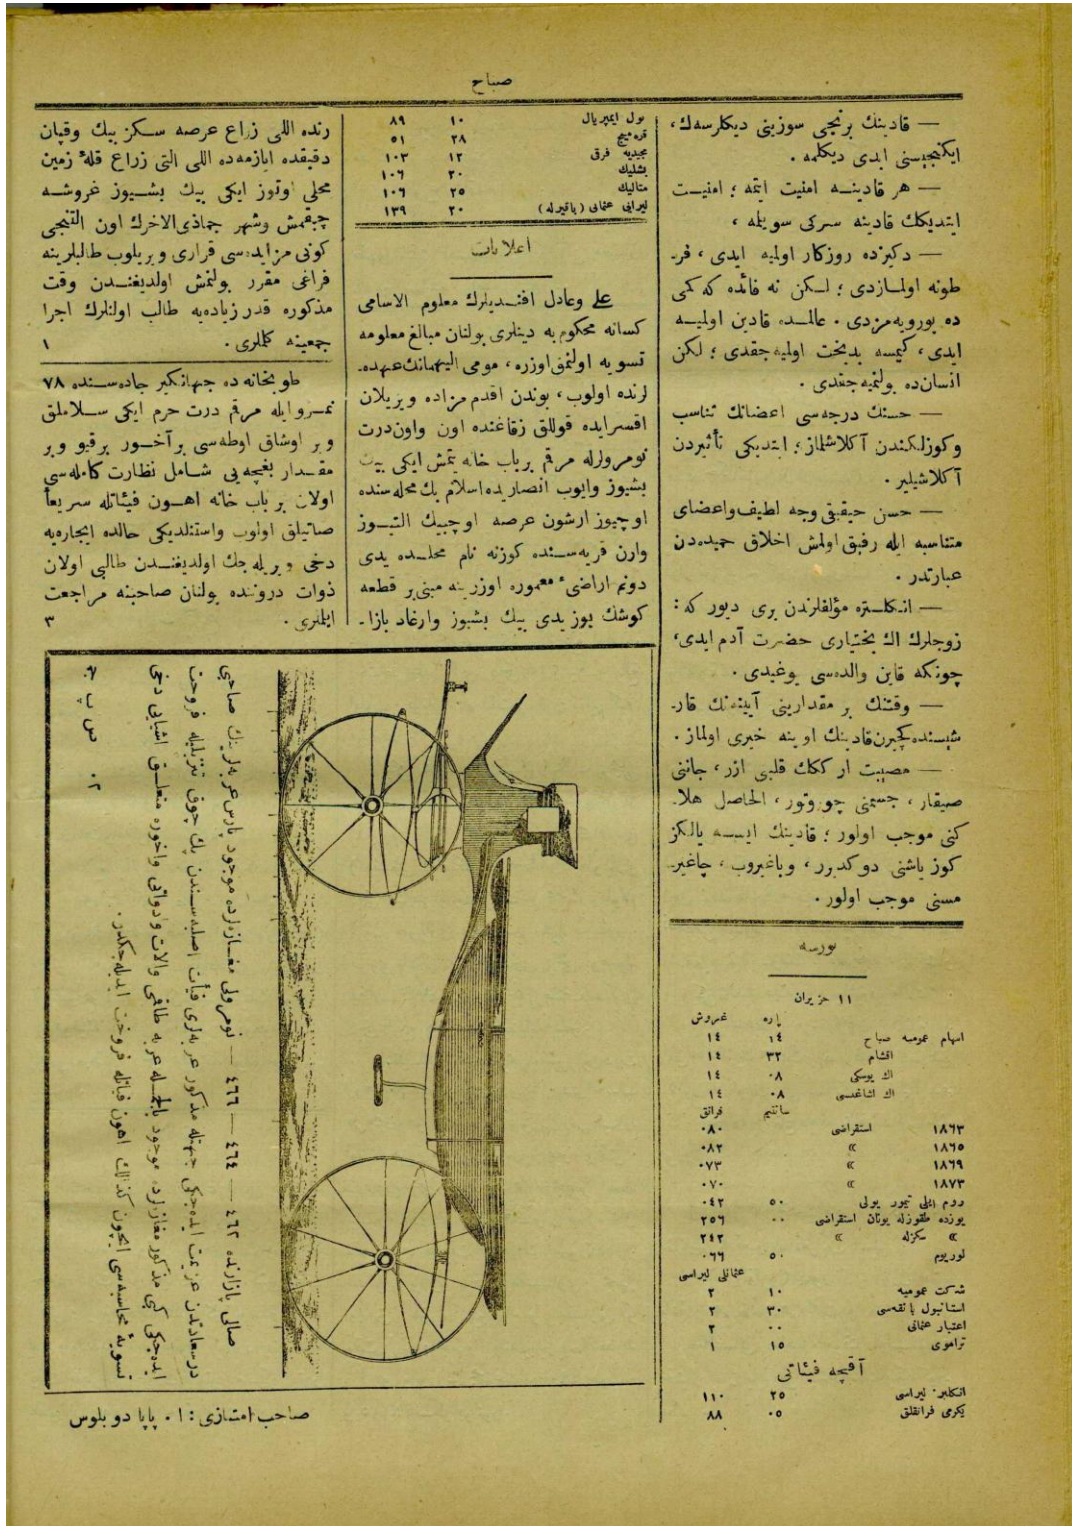 صباح
— قادینك برنجی سوزینی دیكلرسه‌ك،
ایكنجیسنی ابدی دیكلمه .
— هر قادینـه امنیت ایتمه ؛ امنیـت
ایتدیكك قادینه سركی سویلمه ،
— دكیزده روزكار اولمیه ایدی ، فر-
طونه اولمازدی ؛ لـكن نه فائده كه كمی
ده یورویه‌مزدی . عالمـده قادین اولمیـه
ایدی، كیمسه بدبخت اولمیه‌جقدی ؛ لكن
انسان‌ده بولنمیه‌جقدی .
— حسنك درجه‌سی اعضانك تناسب
وكوزلكندن آكلاشلماز؛ ایتدیكی تأثیردن
آكلاشیلیر .
— حسن حقیقی وجه لطیف‌واعضای
متناسبه ایله رفیق اولمش اخلاق حمیده‌دن
عبارتدر .
— انكلتره مؤلفلرندن بری دیور كه :
زوجلرك اك بختیاری حضرت آدم ایدی،
چونكه قاین والده‌سی یوغیدی .
— وقتنك بر مقدارینی آیینه‌نك قار-
شیسنده‌كچیرن‌قادینك اوینه خیری اولماز .
— مصیبت ار ككك قلبی ازر ، جاننی
صیقار ، جسمنی چوروتور ، الحاصل هلا-
كنی موجب اولور ؛ قادینك ایسـه یالكز
كوز یاشنی دوكدیرر ، وباغیروب ، چاغیر-
مسنی موجب اولور .
بورسه
١١ حزیران
پاره غروش
اسهام عمومیه صباح ١٤ ١٤
اقشام ٣٢ ١٤
اك یوسكی ٠٨ ١٤
اك اشاغیسی ٠٨ ١٤
سانتیم فرانق
١٨٦٣ استقراضی ٠٨٠
١٨٦٥ » ٠٨٢
١٨٦٩ » ٠٧٣
١٨٧٣ » ٠٧٠
روم ایلی تیمور یولی ٥٠ ٠٤٢
یوزده طقوزله یونان استقراضی ٠٠ ٢٥٦
» سكزله » ٢٤٢
لوریوم ٥٠ ٠٦٦
عثمانلی لیراسی
شركت عمومیه ١٠ ٢
استانبول بانقه‌سی ٣٠ ٢
اعتبار عثمانی ٠٠ ٢
تراموی ١٥ ١
آقچه فیئاتی
انكلیز لیراسی ٢٥ ١١٠
یكرمی فرانقلق ٠٥ ٨٨
یول ایمپریال ١٠ ٨٩
قره‌میچ ٢٨ ٥١
مجیدیه فرقی ١٢ ١٠٣
بشلیك ٢٠ ١٠٦
متالیك ٢٥ ١٠٦
لیرایی عثمانی (باقیرله) ٢٠ ١٣٩
اعلانات
علی وعادل افندیلرك معلوم الاسامی
كسانه محكوم‌به دینلری بولنان مبالغ معلومه
تسویه اولنمق‌اوزره، مومی الیهمانك‌عهده-
لرنده اولوب، بوندن اقدم مزاده ویریلان
اقسرایده قوللق زقاغنده اون واون‌درت
نومرولرله مرقم برباب خانه یتمش ایكی بیك
بشیوز وایوب انصاریده‌اسلام بك‌محله‌سنده
اوچیوز ارشون عرصه اوچ‌بیك التیـوز
وارن قریه‌سـنده كوزنه نام محلـده یدی
دونم اراضیٔ معموره اوزرینه مبنی‌بر قطعه
كوشك یوز یدی بیك بشیوز وارغاد بازا-
رنده اللی زراع عرصه سـكز بیك وقپان
دقیقده ایازمه‌ده اللی التی زراع قلهٔ زمین
محلی اوتوز ایكی بیك بشـیوز غروشـه
چیقمش وشهر جمادی‌الاخرك اون التنجی
كونی مزایده‌سی قراری ویریلوب طالبلرینه
فراغی مقرر بولنمش اولدیغنـدن وقت
مذكوره قدر زیاده‌یه طالب اولنلرك اجرا
جمعیتنه كلملری . ١
طوبخانه ده جهانكیر جاده‌سـنده ٧٨
نمـروایله مرقم درت حرم ایكی سـلاملق
وبر اوشاق اوطه‌سی برآخـور برقیو وبر
مقـدار بغچه‌یی شـامل نظارت كامله‌سی
اولان بر باب خانه اهـون فیئاتله سریعاً
صاتیلق اولوب واستنلدیكی حالده ایجاره‌یه
دخی ویریله‌جك اولدیغنـدن طالبی اولان
ذوات دروننده بولنان صاحبنه مراجعت
ایلملری . ٣
صالی پازارنده ٤٦٢ — ٤٦٤ — ٤٦٦ — نومرولی مغـازه‌لرده موجود پارس عربه‌لرینك صاحبی
درسعادتدن عزیمت ایده‌جكی جهتله مذكور عربه‌لری فیأت اصلیه‌سـندن پك چوق تنزیلیله فروخت
ایده‌جكی كبی مذكور مغازه‌لرده موجود بالجمـله عربه طاقمی والات وادواتی واخوره متعلـق اشیایی دخی
تسویهٔ محاسبه‌سی ایچون كذالك اهون فیاتله فروخت ایدیله‌جكدر .
صاحب امتیازی : ا . پاپا دوبلوس